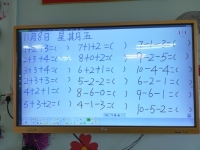 11月8日 星期五
2+3=( ) 7+1+2=(
2+3+4=( ) 8+0+2=( 9-2-5=(
3+3+4=( ) 6+2+1=( 10-4-4=(
2+4+3=( ) 5-2-2=( 6-2-1=(
4+2+1=( ) 8-6-0=( 9-6-1=(
5+3+2=( ) 4-1-3=( 10-5-2=(